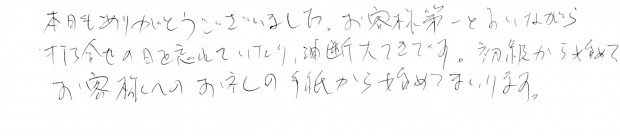 本日もありがとうございました。お客様第一と言いながら
打合せの日を忘れていたり、油断大てきです。初級から始めて
お客様へのお礼の手紙から始めてまいります。